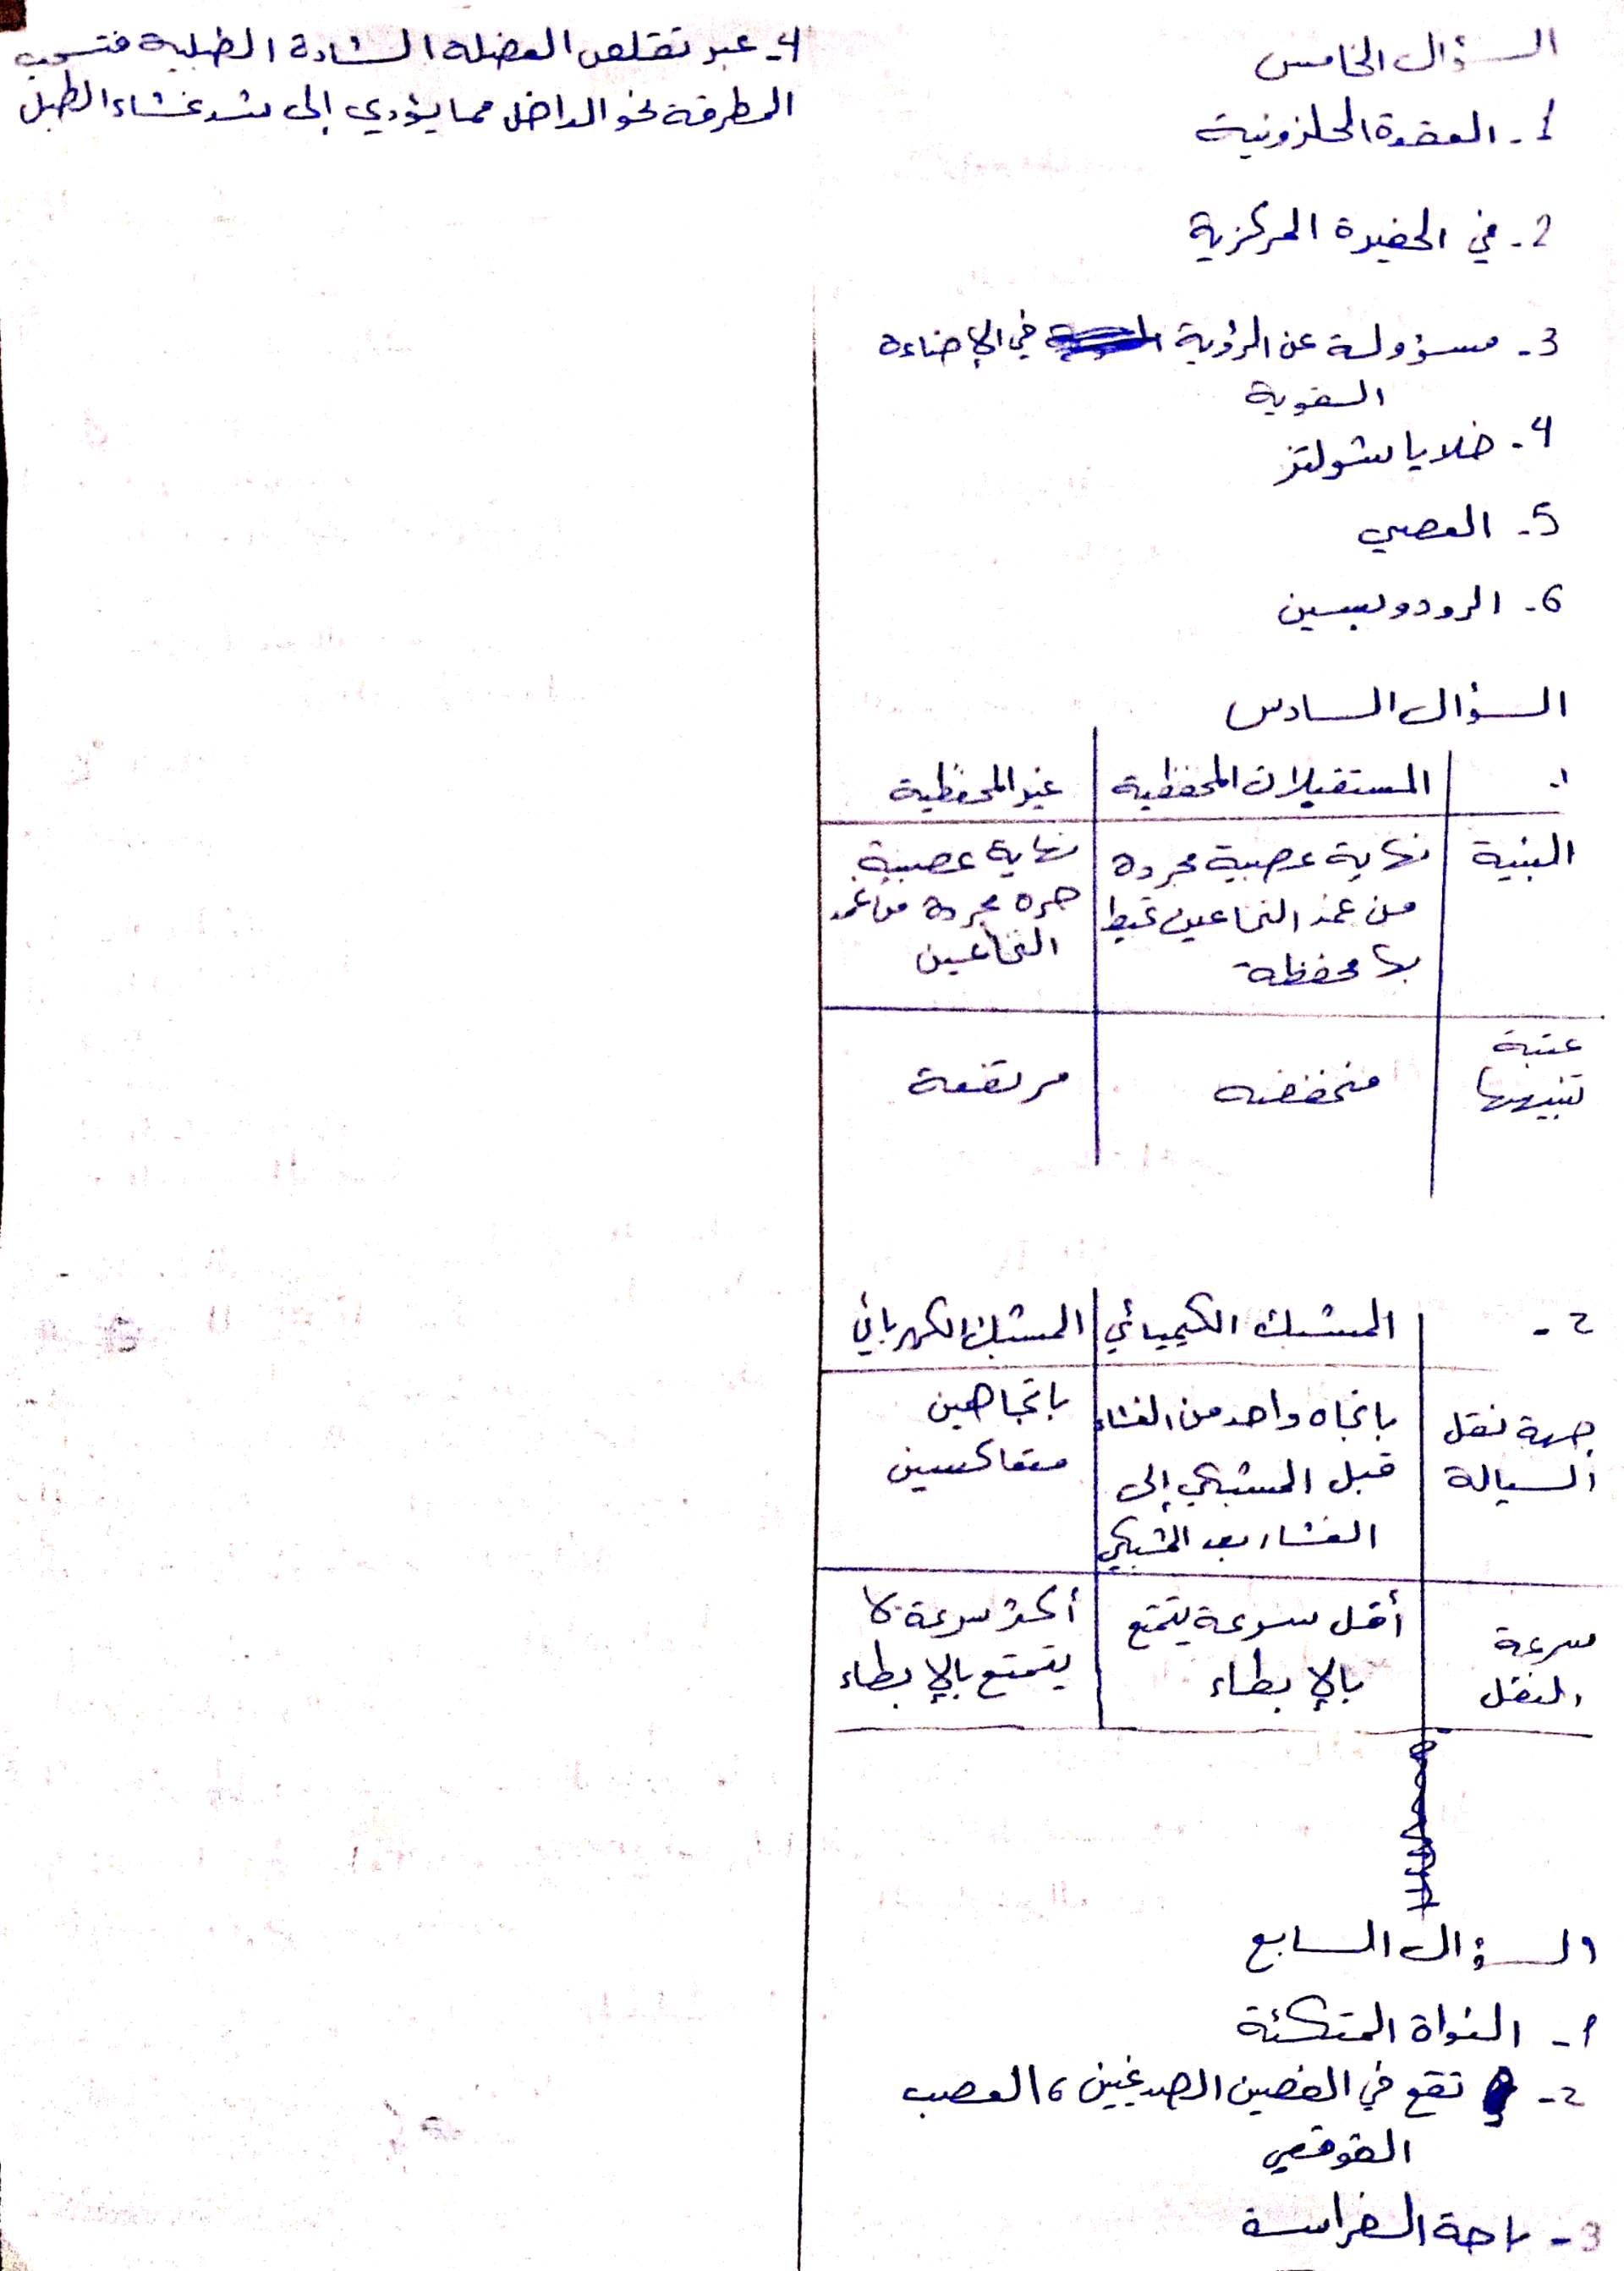 السؤال الخامس
1- العقدة الحلزونية
2- في الحفيرة المركزية
3- مسؤولة عن الرؤية في الإضاءة
القوية
4- خلايا شولتز
5- العصي
6- الرودوبسين
السؤال السادس
1- المستقبلات المحفظية غير المحفظية
البنية نهاية عصبية مجردة نهاية عصبية
من غمد النخاعين تحيط حرة مجردة من غمد
بها محفظة النخاعين
عتبة
تنبيهها منخفضه مرتفعة
2- المشبك الكيميائي المشبك الكهربائي
جهة نقل باتجاه واحد من الغشاء باتجاهين
السيالة قبل المشبكي إلى متعاكسين
الغشاء بعد المشبكي
سرعة أقل سرعة يتمتع أكثر سرعة لا
النقل بالإبطاء يتمتع بالإبطاء
السؤال السابع
1- النواة المتكئة
2- تقع في الفصين الصدغيين ، العصب
القوقعي
3- باحة الفراسة
4- عبر تقلص العضله الشادة الطبلية فتسحب
المطرقة نحو الداخل مما يؤدي إلى شد غشاء الطبل